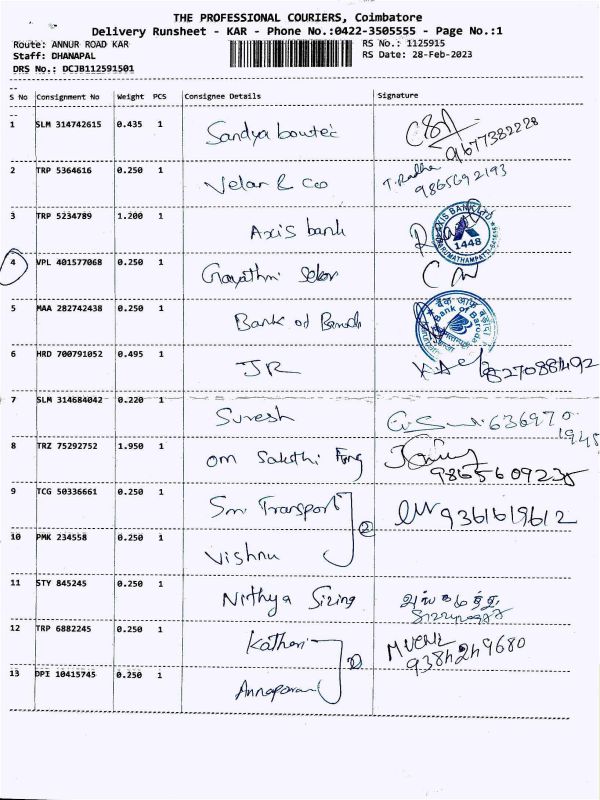 THE PROFESSIONAL COURIERS, Coimbatore
Delivery Runsheet - KAR - Phone No.:0422-3505555 - Page No.:1
Route: ANNUR ROAD KAR RS No.: 1125915
Staff: DHANAPAL RS Date: 28-Feb-2023
DRS No.: DCJB112591501
S No Consignment No Weight PCS Consignee Details Signature
1 SLM 314742615 0.435 1 Sandya 9677382228
2 TRP 5364616 0.250 1 Velan & Co T. Radha 9865692193
3 TRP 5234789 1.200 1 Axis bank AXIS BANK LTD 1448
4 VPL 401577068 0.250 1 Gayathri
5 MAA 282742438 0.250 1 Bank of बैंक ऑफ़ बड़ौदा Bank of Baroda
6 HRD 700791052 0.495 1 JR 8270881492
7 SLM 314684042 0.220 1 Suresh 636970 1945
8 TRZ 75292752 1.950 1 om Sakthi 9865609235
9 TCG 50336661 0.250 1 Smi Transport 2 9361619612
10 PMK 234558 0.250 1 Vishnu
11 STY 845245 0.250 1 Nithya Sizing
12 TRP 6882245 0.250 1 Kathari 2 9384249680
13 DPI 10415745 0.250 1